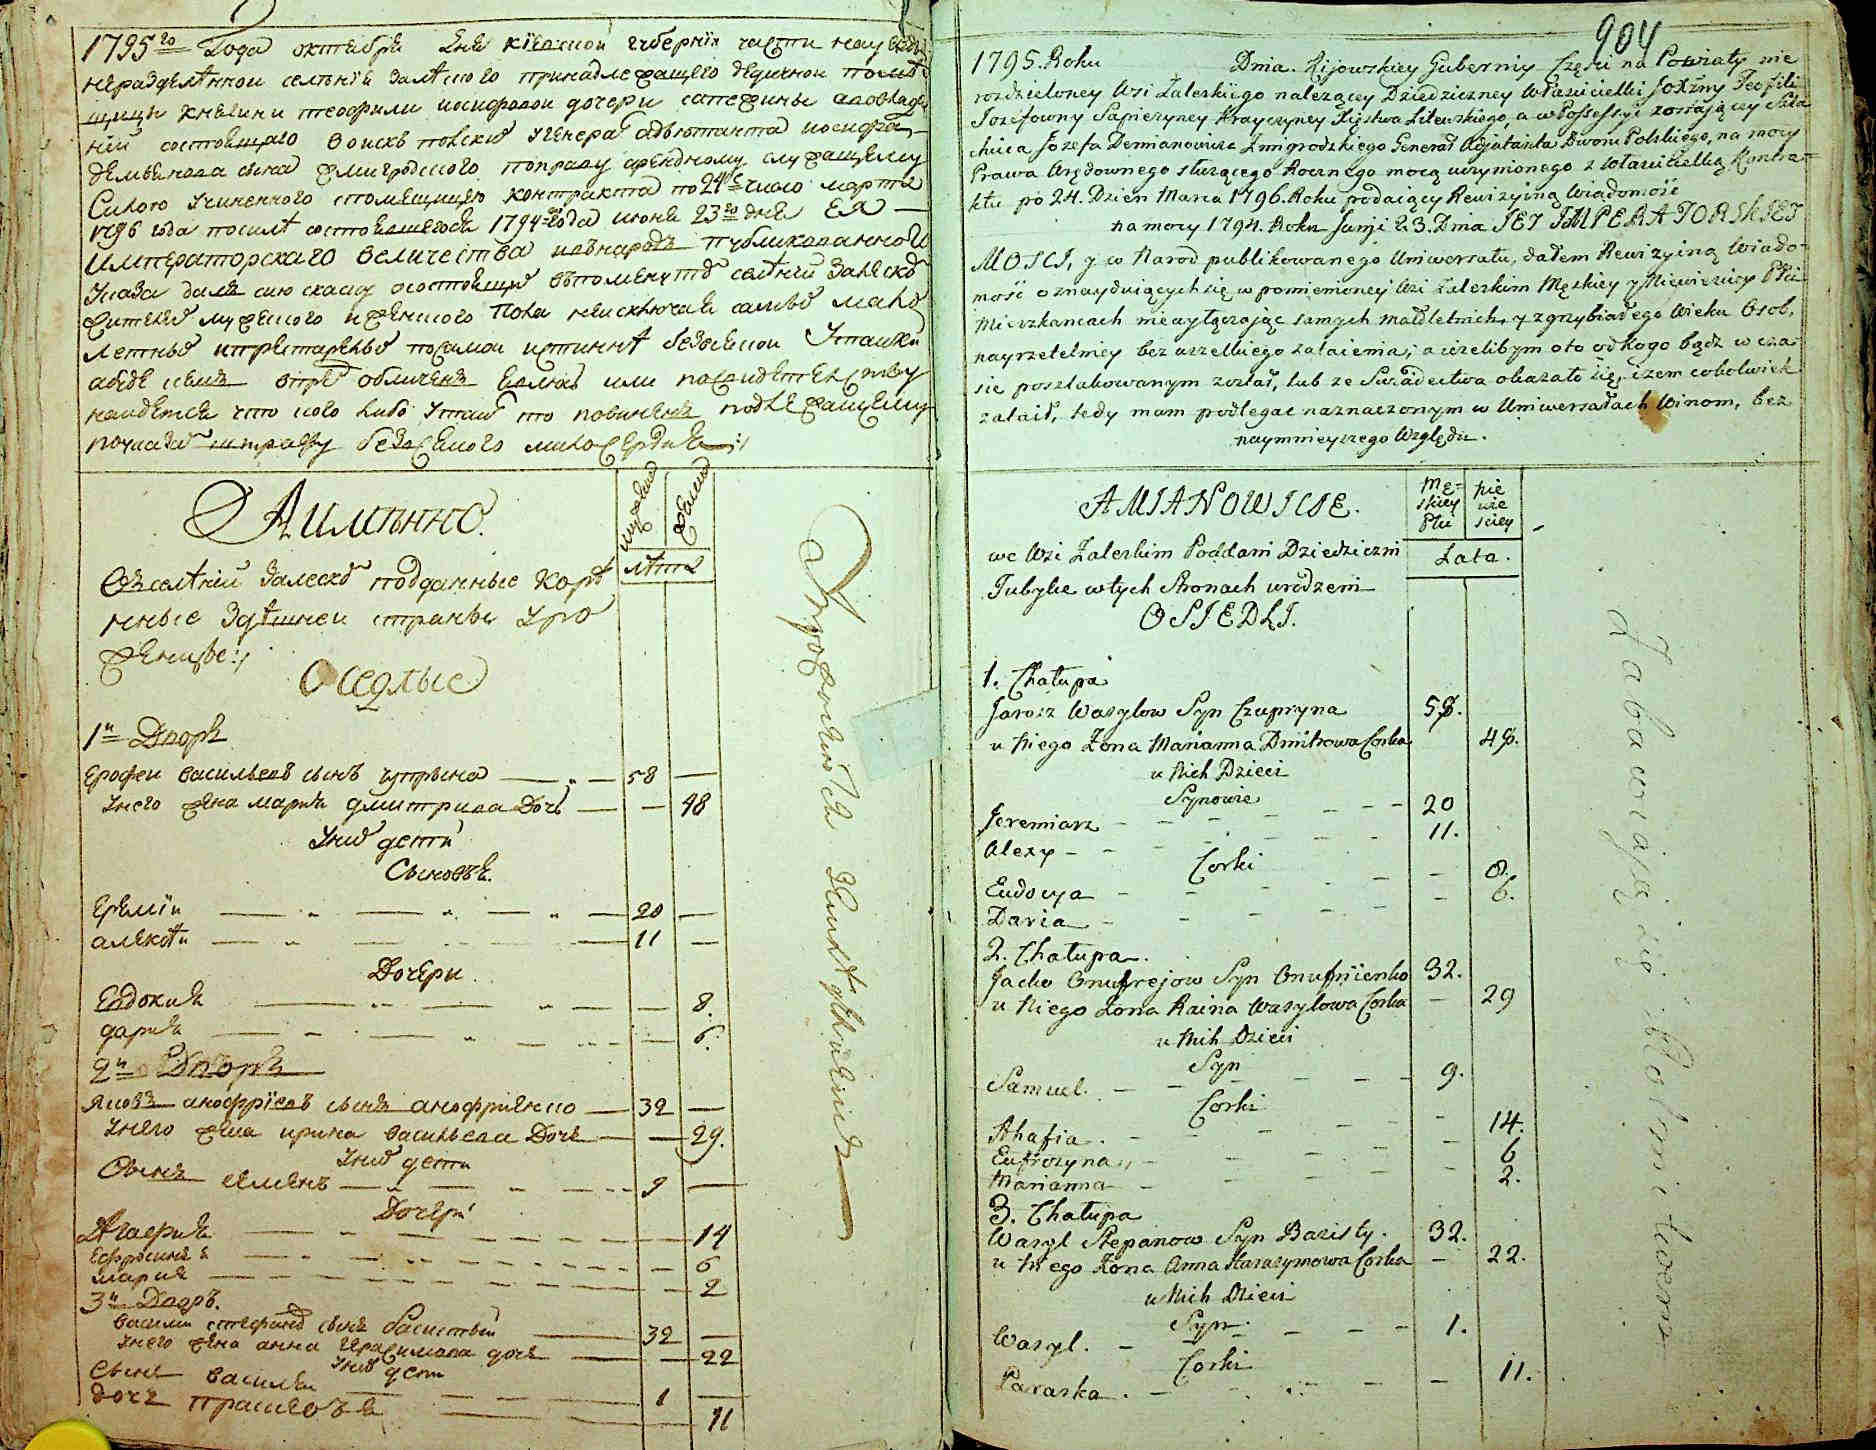 1795го Года октября Дня кіевской губерніи части науезды
нераздѣленной селенія Залѣского принадлежащего дедичной помѣ
щицы княгини теофили иосифовой дочери сапежины авовладе
ніи состоящаго войскъ полских генерал адьютанта иосифа
демьянова сына змигродского поправу арендному служащему
Силою учиненного спомещицею контракта по 24е число марта
1796 года посилѣ состоявшегося 1794 года июня 23го дня ЕЯ
Императорскаго Величества внародъ публикованного
указа далъ сию скаску осостоящих въпоменутом селѣнии Залеском
жителей мужеского и женского пола неисключая самых мало
летных ипрестарелых посамой истиннѣ безвсякой Утайки
абуде я втом обличенъ
найдется что кого либо утаил то повиненъ подлежащему
поуказам штрафу безвсякого милосердия
Аимянно.
мужеска
женска
лѣта
Въселѣнии Залеском подданные корѣ
нные здѣшней страны уро
женцы:
Оседлые
1й Дворъ
Ерофеи васильевъ сынъ чупрына — 58 —
Унего жена мария дмитрива Дочь — — 48
Уних дети
Сыновья
Еремѣи — 20 —
алексѣи — 11 —
Дочери
Евдокия — 8.
дария — 6.
2й Дворъ
Яковъ анофріевъ сынъ анофриенко — 32 —
Унего жена ирина васильева Дочь — — 29.
Уних дети
Сынъ семенъ — 9 —
Дочери
Агафия — 14
Ефросиния — 6
мария — 2
3й Дворъ.
василий стефанов сынъ басистый — 32 —
Унего жена анна герасимова дочь — — 22
Уних дети
Сынъ василии — 1 —
дочь прасковья — 11
904
1795. Roku Dnia. Kijowskiey Guberniy Części na Powiaty nie
rozdzieloney Wsi Zaleskiego należącey Dziedziczney Właścicielki Jośźiny Teofili
Jozefowny Sapieżyney Krayczyney Xięstwa Litewskiego, a w Possessyi zostającey Szla
chcica Józefa Demianowicza Zmigrodzkiego Generał Adjutanta Dwoni Polskiego, na mocy
Prawa Arędownego służącego Rocznego mocą uczynionego z Własicielką Kontra=
ktu po 24. Dzień Marca 1796. Roku podaiący Rewizyiną Wiadomość
na mocy 1794. Roku Junji 23. Dnia JEY IMPERATORSKIEY
MOSCI, y w Narod publikowanego Uniwersału, dałem Rewizyiną Wiado=
mość o znayduiących się w pomienioney Wsi Zaleskim Męskiey y Niewiesciey Płci
Mieszkancach nie wyłączając samych małoletnich, y zgrzybiałego Wieku Osob,
nayrzetelniey bez wszelkiego zataienia; a ieżelibym oto od kogo bądz w cza
sie poszlakowanym został, lub ze Swiadectwa okazało się, iżem cokolwiek
zataił, tedy mam podlegać naznaczonym w Uniwersałach Winom, bez
naymnieyszego Względu.
AMIANOWICIE.
Mę=
skiey
Płci
Nie
wie
sciey
Lata.
we Wsi Zaleskim Poddani Dziedziczni
Tubylce w tych Stronach urodzeni
OSIEDLI.
1. Chałupa
Jarosz Wasylow Syn Czupryna 58.
u Niego Żona Marianna Dmitrowa Corka 48.
u Nich Dzieci
Synowie
Jeremiasz 20
Alexy 11.
Corki
Eudocya 8.
Daria 6.
2. Chałupa.
Jacko Onufrejow Syn Onufrijenko 32.
u Niego Żona Raina Wasylowa Corka — 29
u Nich Dzieci
Syn
Samuel. 9.
Corki
Ahafia. 14.
Eufrozyna 6
Marianna 2.
3. Chałupa
Wasyl Stepanow Syn Basisty. 32.
u Niego Żona Anna Harasymowa Corka — 22.
u Nich Dzieci
Syn.
Wasyl. 1.
Corki
Paraska. 11.
Zabawiają się Rolnictwem